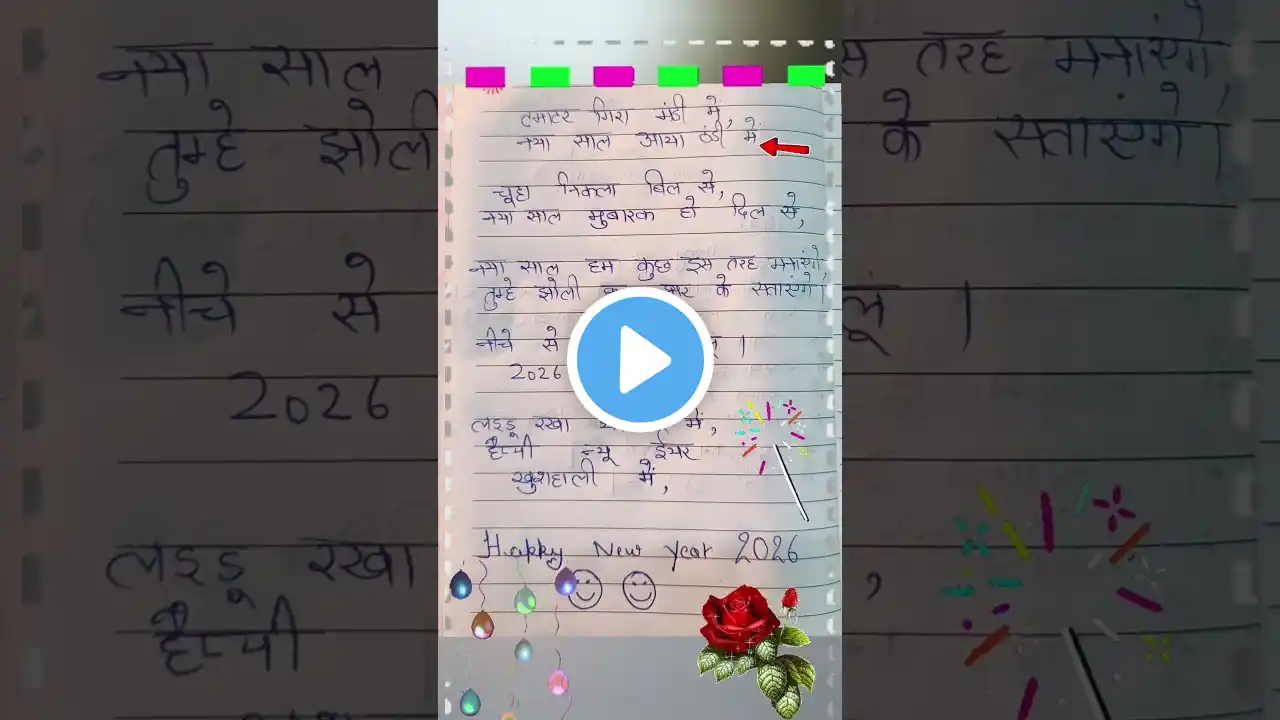 टमाटर गिरा मंडी में,
नया साल आया ठंडी में
चूहा निकला बिल से,
नया साल मुबारक हो दिल से,
नया साल हम कुछ इस तरह मनाएंगे,
तुम्हे झोली के सताएंगे।
नीचे से
2026
लड्डू रखा में,
हैप्पी न्यू ईयर
खुशहाली में,
Happy New Year 2026